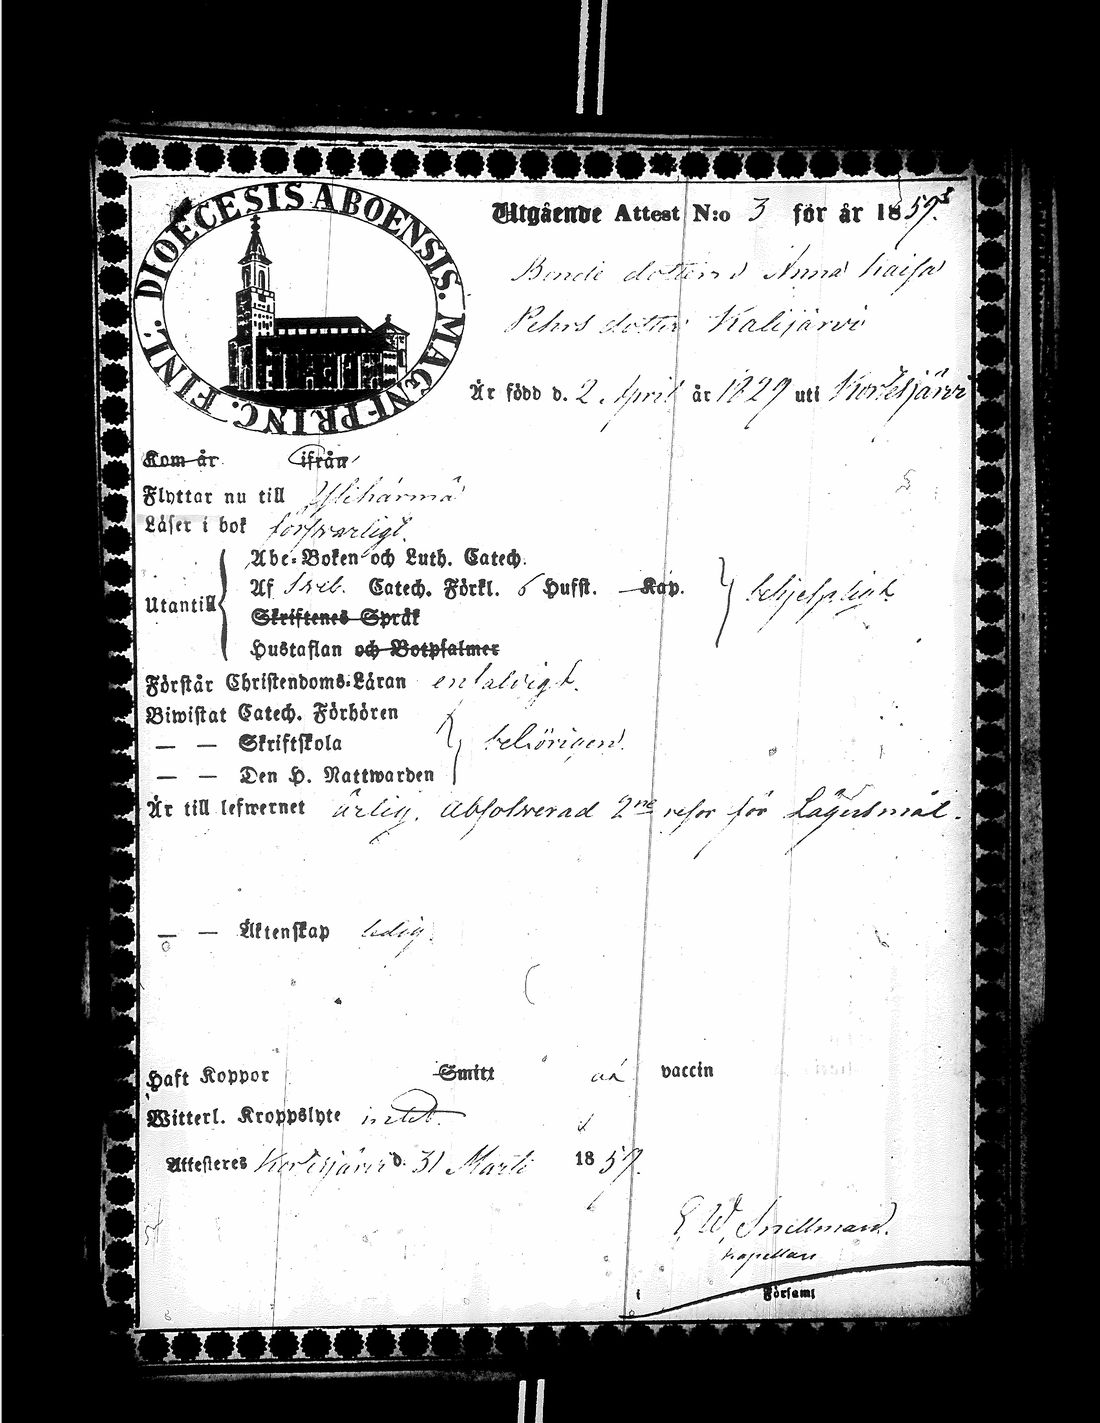 DIOECESIS ABOENSIS. MAGNI PRINC. FINL.
Utgående Attest N:o 3 för år 1859.
Bonde dottern Anna Kaisa
Pehrs dotter Kalijärvi
Är född d. 2 April år 1829 uti Kortesjärvi
Kom år ifrån
Flyttar nu till Ylihärmä
Läser i bok försvarligt.
Utantill
Abc-Boken och Luth. Catech.
Af Sveb. Catech. Förkl. 6 Hufst. Kap.
Skriftenes Språk
Hustaflan och Botpsalmer
behjelpligt
Förstår Christendoms-Läran enfaldigt.
Biwistat Catech. Förhören
— — Skriftskola
— — Den H. Nattwarden
behörigen
Är till lefwernet ärlig. Absolverad 2ne resor för Lägersmål.
— — Äktenskap ledig.
Haft Koppor Smitt vaccin
Witterl. Kroppslyte intet.
Attesteres Kortesjärvi d. 31 Martii 1859.
E. W. Snellman.
Kapellan
i Församl